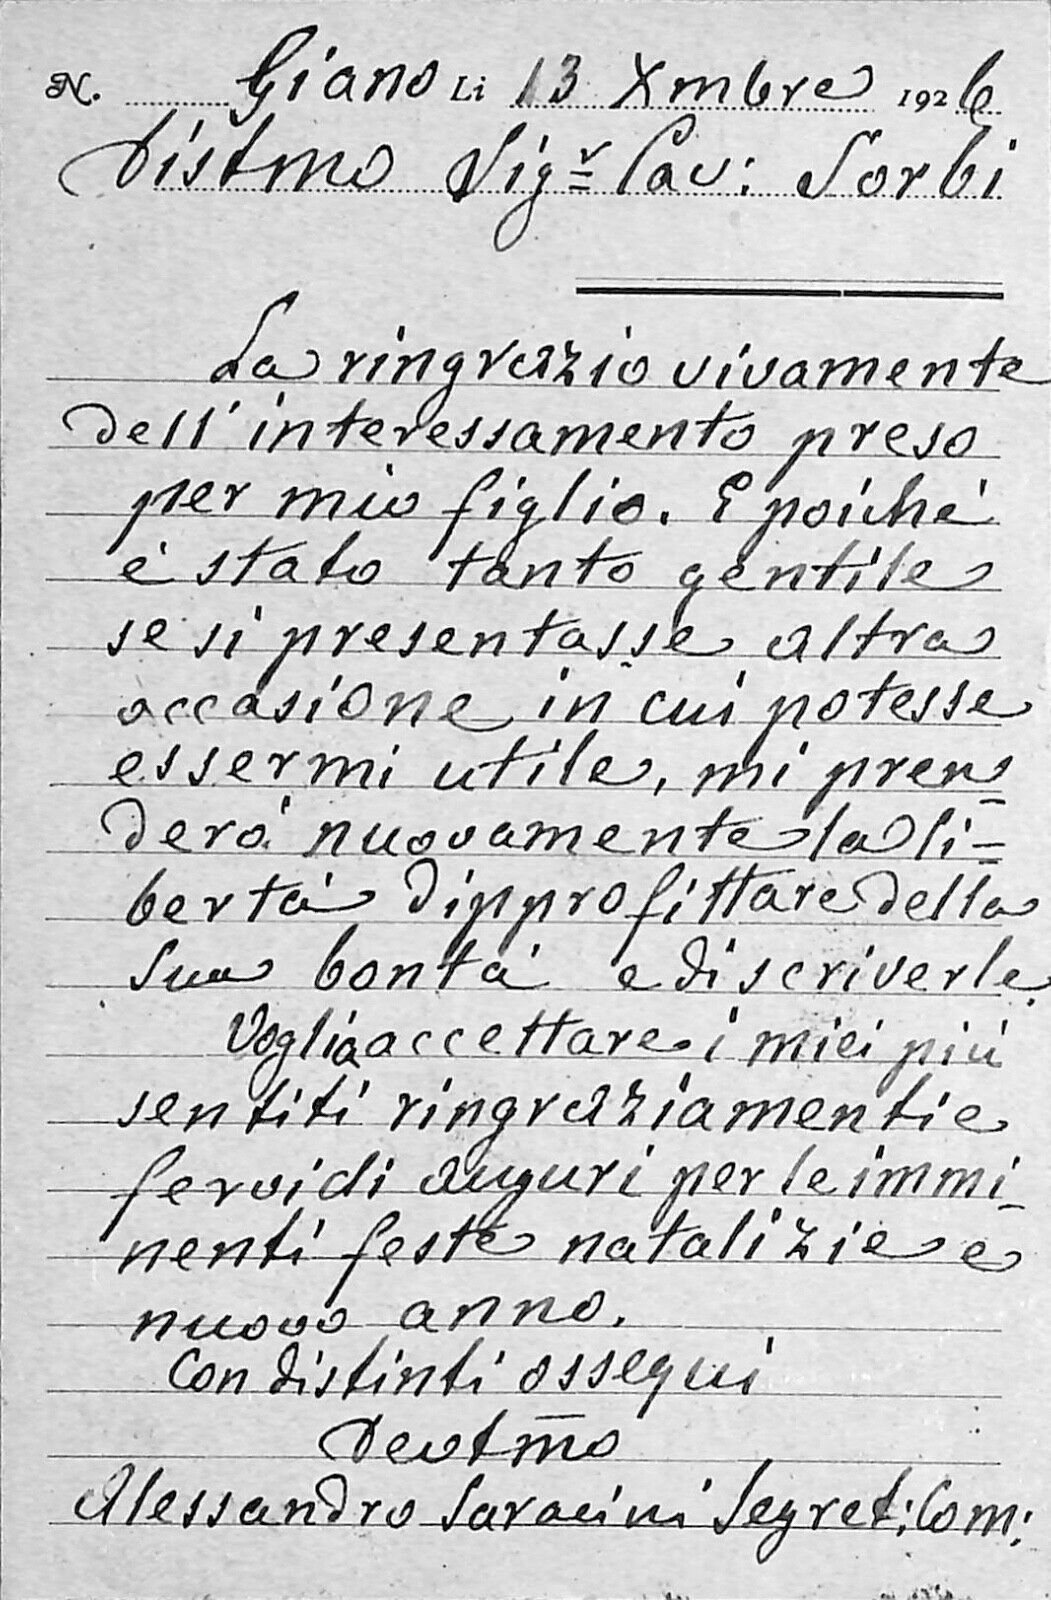 N. Giano Li 13 Xmbre 1926
Distmo Sigr Cav: Sorbi
La ringrazio vivamente
dell'interessamento preso
per mio figlio. E poiché
è stato tanto gentile
se si presentasse altra
occasione in cui potesse
essermi utile, mi pren=
derò nuovamente la li=
bertà dipprofittare della
Sua bontà e di scriverle.
Voglia accettare i miei più
sentiti ringraziamenti e
fervidi auguri per le immi-
nenti feste natalizie e
nuovo anno.
Con distinti ossequi
Devotmo
Alessandro Saracini Segret: Com: